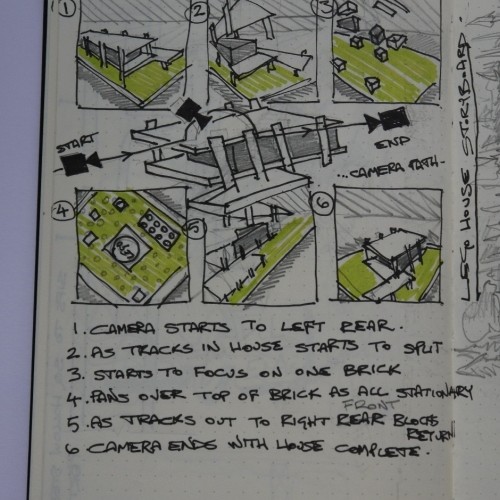 1
2
3
START
END
...CAMERA PATH-
4
5
6
LEGO
1. CAMERA STARTS TO LEFT REAR.
2. AS TRACKS IN HOUSE STARTS TO SPLIT
3. STARTS TO FOCUS ON ONE BRICK
4. PANS OVER TOP OF BRICK AS ALL STATIONARY
FRONT
5. AS TRACKS OUT TO RIGHT REAR BLOCKS
RETURN
6 CAMERA ENDS WITH HOUSE COMPLETE.
LEGO HOUSE STORYBOARD.